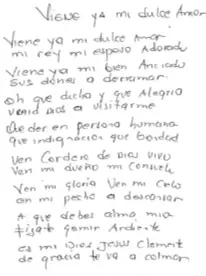 Viene ya mi dulce Amor
Viene ya mi dulce Amor
mi rey mi esposo Adorado
Viene ya mi bien Anciado
sus dones a derramar.
Oh que dicha y que Alegria
venid Dios a visitarme
que der en persona humana
que indignacion que bondad
Ven Cordero de Dios vivo
Ven mi dueño mi Consuelo
Ven mi gloria Ven mi Cielo
en mi pecho a descansar
A que debes alma mia
fijate gemir Ardiente
es mi Dios Jesus Clement
de gracia te va a colmar